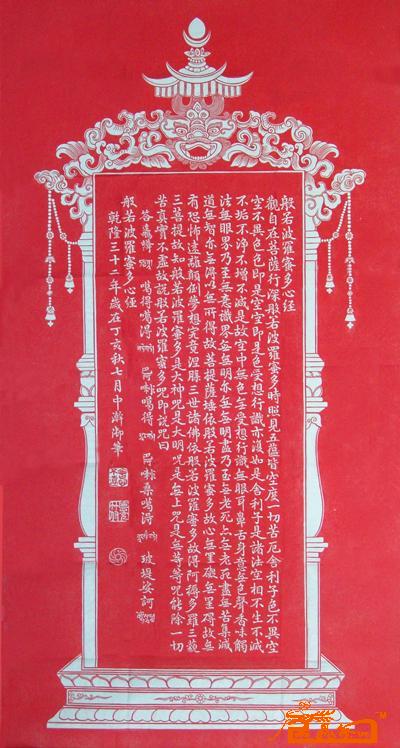 般若波羅蜜多心经
觀自在菩薩行深般若波羅蜜多時照見五蘊皆空度一切苦厄舍利子色不異空
空不異色色即是空空即是色受想行識亦復如是舍利子是諸法空相不生不滅
不垢不淨不增不減是故空中無色無受想行識無眼耳鼻舌身意無色聲香味觸
法無眼界乃至無意識界無無明亦無無明盡乃至無老死亦無老死盡無苦集滅
道無智亦無得以無所得故菩提薩埵依般若波羅蜜多故心無罣礙無罣礙故無
有恐怖遠離顛倒夢想究竟涅槃三世諸佛依般若波羅蜜多故得阿耨多羅三藐
三菩提故知般若波羅蜜多是大神咒是大明咒是無上咒是無等等咒能除一切
苦真實不虛故說般若波羅蜜多咒即說咒曰
噶得噶得 巴喇噶得 巴喇桑噶得 玻提娑訶
般若波羅蜜多心经
乾隆三十二年歲在丁亥秋七月中澣御筆